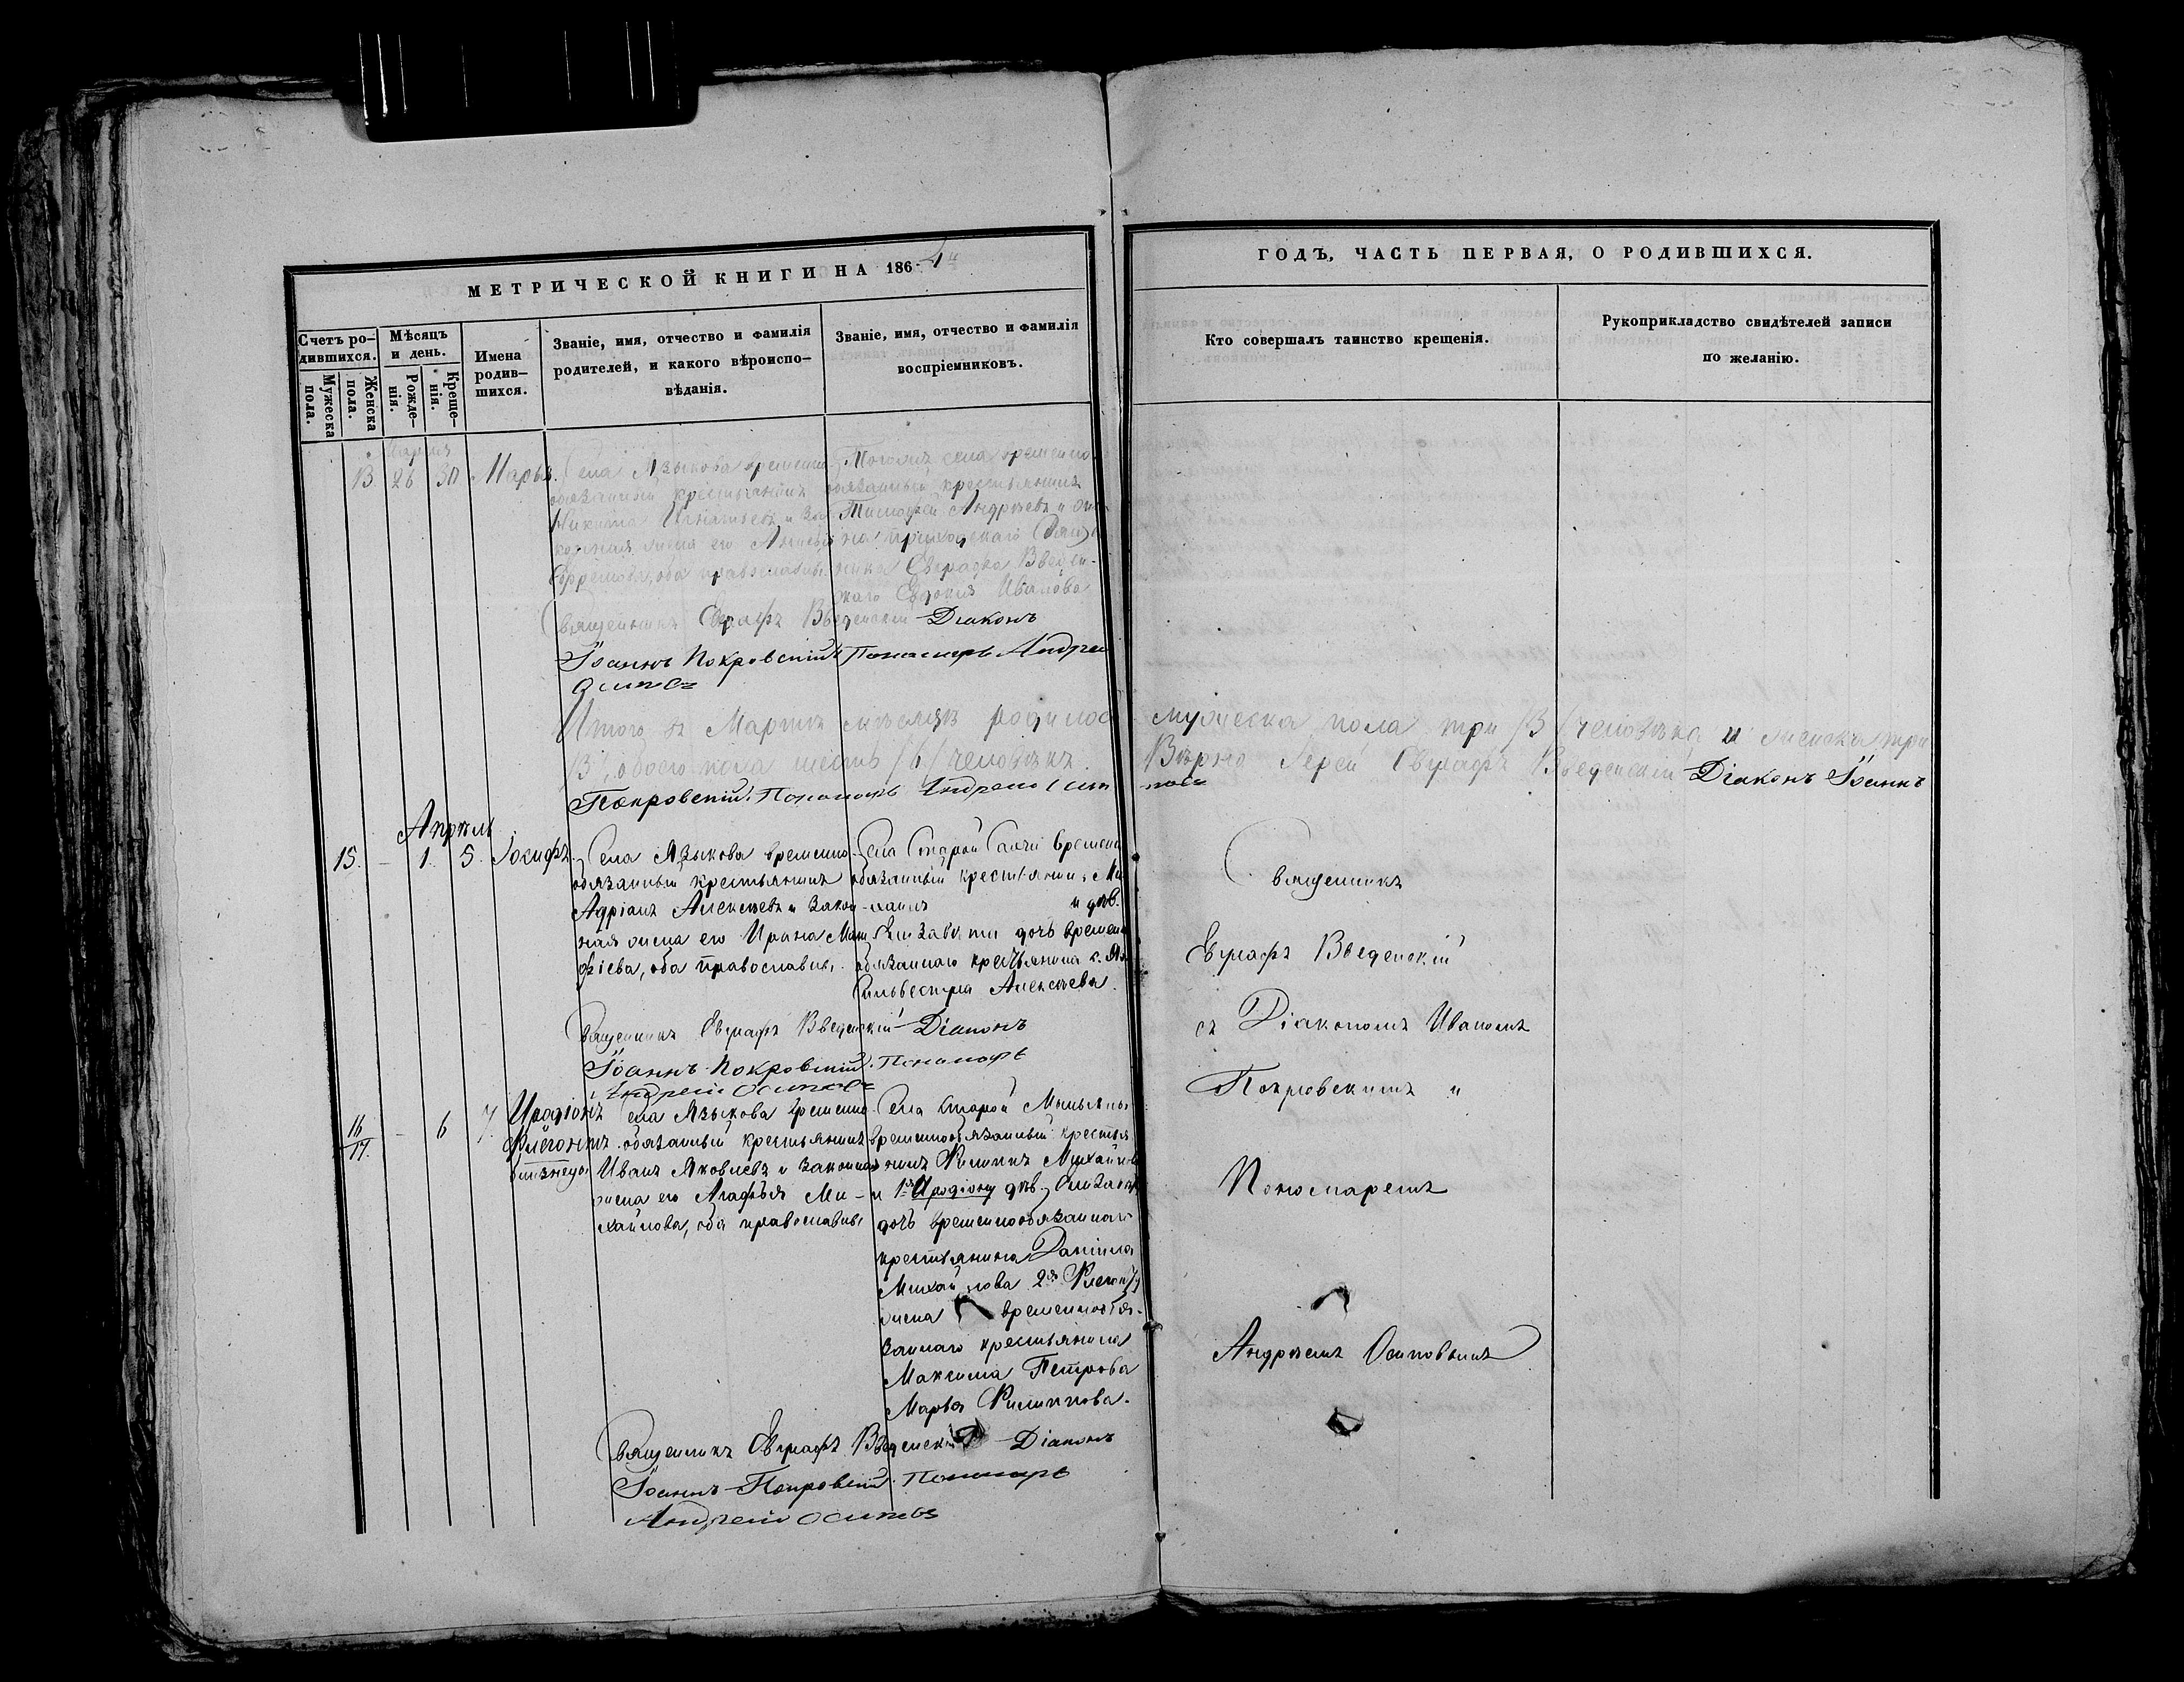 МЕТРИЧЕСКОЙ КНИГИ НА 1864
ГОДЪ, ЧАСТЬ ПЕРВАЯ, О РОДИВШИХСЯ.
Счетъ ро-
дившихся.
Мужеска
пола.
Женска
пола.
Мѣсяцъ
и день.
Рожде-
нія.
Креще-
нія.
Имена
родив-
шихся.
Званіе, имя, отчество и фамилія
родителей, и какого вѣроиспо-
вѣданія.
Званіе, имя, отчество и фамилія
воспріемниковъ.
Кто совершалъ таинство крещенія.
Рукоприкладство свидѣтелей записи
по желанію.
Марта
13. 26 30 Марья.
Села Языкова временно
обязанный крестьянинъ
Никита Игнатьевъ и зак
конная жена его
Ефремова, оба православные
Тогожъ села временно
обязанный крестьянинъ
Тимофей Андреевъ и
приходскаго
Евграфа Введен-
скаго Евдокія Иванова
Священникъ Евграфъ Введенскій Діаконъ
Іоаннъ Покровскій Пономарь Андрей
Осиповъ
Итого въ Мартѣ мѣсяцѣ родилось мужеска пола три /3/ человѣка и женска три
/3/, обоего пола шесть /6/ человѣкъ. Вѣрно Іерей Евграфъ Введенскій Діаконъ Іоаннъ
Покровскій. Пономарь Андрей Осиповъ
Апрѣль
15. - 1. 5. Іосифъ.
Села Языкова временно
обязанный крестьянинъ
Адріанъ Алексѣевъ и закон
ная жена его Ирина Мак
фіева, оба православные.
Села Старой временно
обязанный крестьянинъ Ми
хаилъ и дѣв.
Елизавета дочь временно
обязаннаго крестьянина с. Яз
Сильвестра Алексѣева.
Священникъ Евграфъ Введенскій Діаконъ
Іоаннъ Покровскій. Пономарь
Андрей Осиповъ
Священникъ
Евграфъ Введенскій
съ Діакономъ Иваномъ
Покровскимъ и
Пономаремъ
Андреемъ Осиповымъ
16
17. - 6 7.
Иродіонъ
Флегонтъ
близнецы
Села Языкова временно
обязанный крестьянинъ
Иванъ Яковлевъ и законная
жена его Агафья Ми-
хайлова, оба православные
Села Старой
временнообязанный крестья
нинъ Филиппъ Михайловъ
и 1го Иродіону дѣв.
дочь временнообязаннаго
крестьянина Даніила
Михайлова 2му Флегонту
жена временнообя-
заннаго крестьянина
Максима Петрова
Марья Филиппова.
Священникъ Евграфъ Введенскій Діаконъ
Іоаннъ Покровскій. Пономарь
Андрей Осиповъ